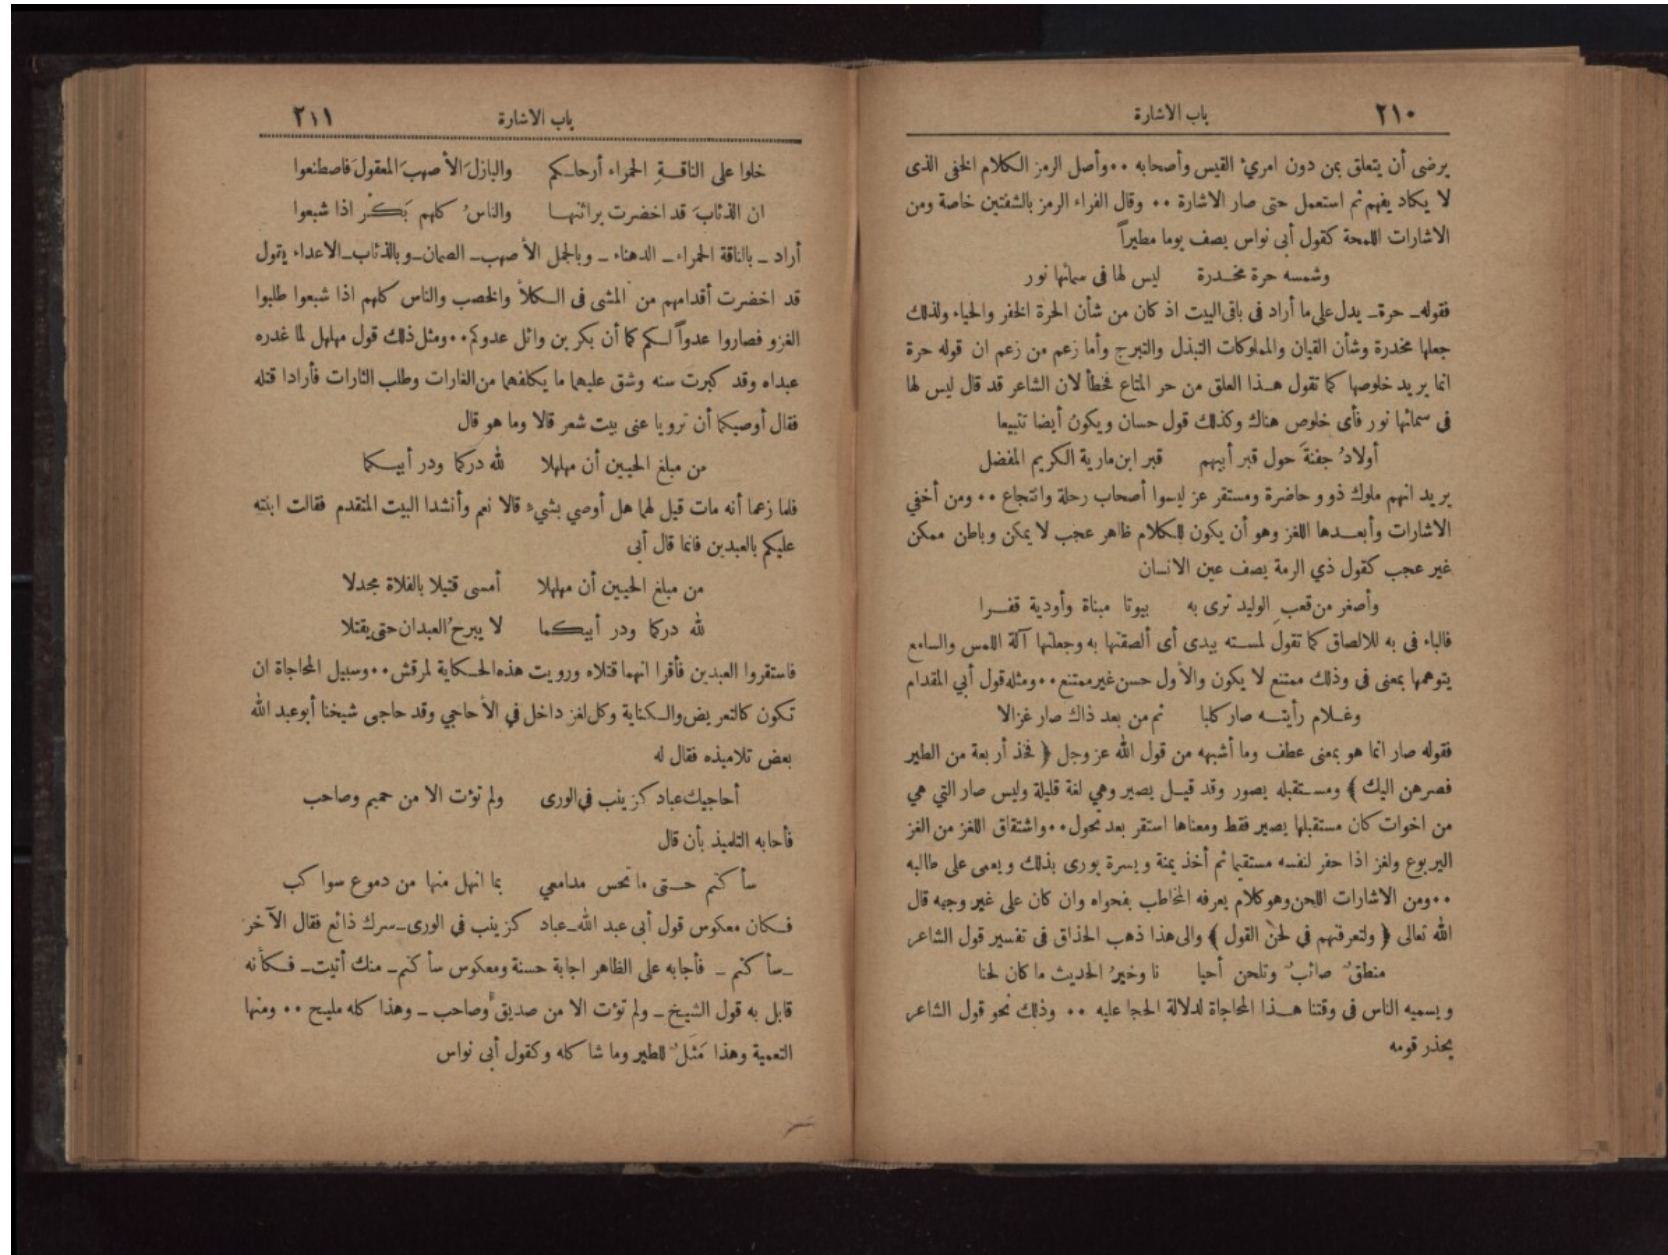 ٢١٠
باب الاشارة
يرضى أن يتعلق بمن دون امرئ القيس وأصحابه ٠٠ وأصل الرمز الكلام الخفى الذى
لا يكاد يفهم ثم استعمل حتى صار الاشارة ٠٠ وقال الفراء الرمز بالشفتين خاصة ومن
الاشارات اللمحة كقول أبى نواس يصف يوما مطيراً
وشمسه حرة مخدرة ليس لها فى سمائها نور
فقوله ـ حرة ـ يدل على ما أراد فى باقى البيت اذ كان من شأن الحرة الخفر والحياء ولذلك
جعلها مخدرة وشأن القيان والمملوكات التبذل والتبرج وأما زعم من زعم ان قوله حرة
انما يريد خلوصها كما تقول هذا العلق من حر المتاع فخطأ لان الشاعر قد قال ليس لها
فى سمائها نور فأى خلوص هناك وكذلك قول حسان ويكون أيضا تتبيعا
أولادُ جفنةَ حول قبر أبيهم قبر ابن مارية الكريم المفضل
يريد انهم ملوك ذوو حاضرة ومستقر عز ليسوا أصحاب رحلة وانتجاع ٠٠ ومن أخفي
الاشارات وأبعدها اللغز وهو أن يكون للكلام ظاهر عجب لا يمكن وباطن ممكن
غير عجب كقول ذي الرمة يصف عين الانسان
وأصغر من قعبِ الوليد ترى به بيوتا مبناة وأودية قفرا
فالباء فى به للالصاق كما تقول لمسته بيدى أى ألصقتها به وجعلتها آلة اللمس والسامع
يتوهمها بمعنى فى وذلك ممتنع لا يكون والأول حسن غير ممتنع ٠٠ ومثله قول أبي المقدام
وغلام رأيته صار كلبا ثم من بعد ذاك صار غزالا
فقوله صار انما هو بمعنى عطف وما أشبهه من قول الله عز وجل ﴿ فخذ أربعة من الطير
فصرهن اليك ﴾ ومستقبله يصور وقد قيل يصير وهي لغة قليلة وليس صار التي هي
من اخوات كان مستقبلها يصير فقط ومعناها استقر بعد تحول ٠٠ واشتقاق اللغز من الغز
اليربوع ولغز اذا حفر لنفسه مستقيما ثم أخذ يمنة ويسرة يورى بذلك ويعمى على طالبه
٠٠ ومن الاشارات اللحن وهو كلام يعرفه المخاطب بفحواه وان كان على غير وجهه قال
الله تعالى ﴿ ولتعرفنهم في لحن القول ﴾ والى هذا ذهب الحذاق فى تفسير قول الشاعر
منطقٌ صائبٌ وتلحن أحيا نا وخيرُ الحديث ما كان لحنا
ويسميه الناس فى وقتنا هذا المحاجاة لدلالة الحجا عليه ٠٠ وذلك نحو قول الشاعر
يحذر قومه
باب الاشارة
٢١١
خلوا على الناقةِ الحمراء أرحلكم والبازلَ الأصهبَ المعقولَ فاصطنعوا
ان الذئابَ قد اخضرت براثنها والناسُ كلهم بَكر اذا شبعوا
أراد ـ بالناقة الحمراء ـ الدهناء ـ وبالجمل الأصهب ـ الصمان ـ وبالذئاب ـ الاعداء يقول
قد اخضرت أقدامهم من المشى فى الكلأ والخصب والناس كلهم اذا شبعوا طلبوا
الغزو فصاروا عدواً لكم كما أن بكر بن وائل عدوكم ٠٠ ومثل ذلك قول مهلهل لما غدره
عبداه وقد كبرت سنه وشق عليهما ما يكلفهما من الغارات وطلب الثارات فأرادا قتله
فقال أوصيكما أن ترويا عنى بيت شعر قالا وما هو قال
من مبلغ الحيين أن مهلهلا لله دركما ودر أبيكما
فلما زعما أنه مات قيل لهما هل أوصي بشيء قالا نعم وأنشدا البيت المتقدم فقالت ابنته
عليكم بالعبدين فانما قال أبى
من مبلغ الحيين أن مهلهلا أمسى قتيلا بالفلاة مجدلا
لله دركما ودر أبيكما لا يبرحُ العبدان حتى يقتلا
فاستقروا العبدين فأقرا انهما قتلاه ورويت هذه الحكاية لمرقش ٠٠ وسبيل المحاجاة ان
تكون كالتعريض والكناية وكل لغز داخل في الأحاجي وقد حاجى شيخنا أبو عبد الله
بعض تلاميذه فقال له
أحاجيك عباد كزينب في الورى ولم تؤت الا من حميم وصاحب
فأجابه التلميذ بأن قال
سأكتم حتى ما تحس مدامعي بما انهل منها من دموع سواكب
فكان معكوس قول أبى عبد الله ـ عباد كزينب في الورى ـ سرك ذائع فقال الآخر
ـ سأكتم ـ فأجابه على الظاهر اجابة حسنة ومعكوس سأكتم ـ منك أتيت ـ فكأنه
قابل به قول الشيخ ـ ولم تؤت الا من صديق وصاحب ـ وهذا كله مليح ٠٠ ومنها
التعمية وهذا مَثَلٌ للطير وما شاكله وكقول أبى نواس